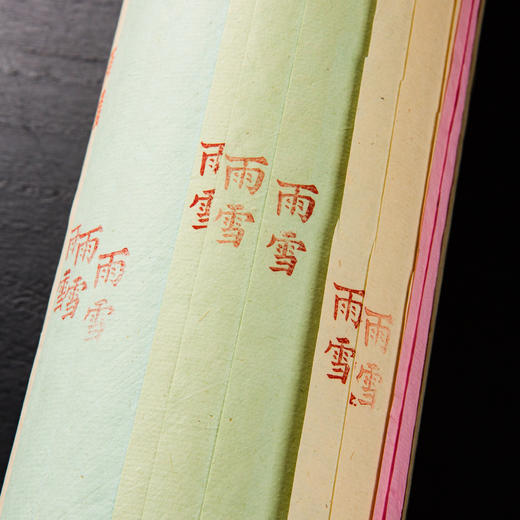 雨雪
雨雪
雨雪
雨雪
雨雪
雨雪
雨雪